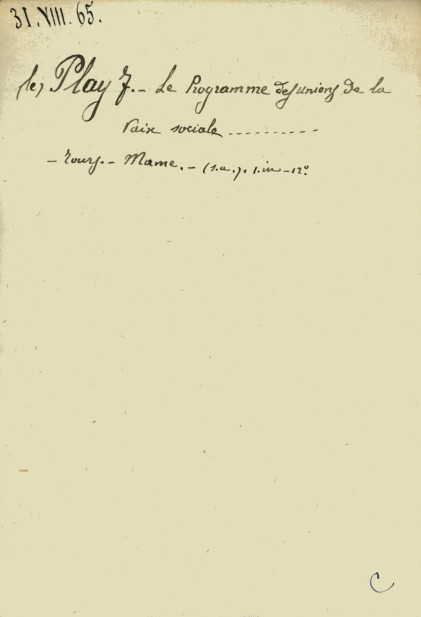 31.VIII.65.
(le) Play F. - Le Programme des unions de la
Paix sociale ----------
- Tours. - Mame. - (s.a.). 1.in - 12°
C